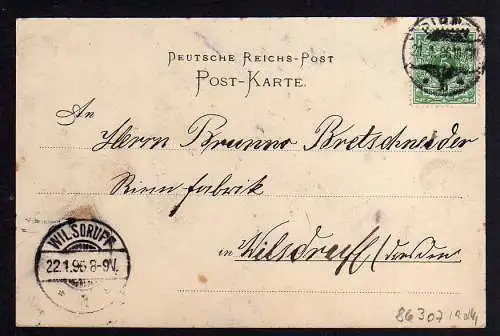 DEUTSCHE REICHS-POST
POST-KARTE.
An
Herrn Brunno Bretschneider
fabrik
in Wilsdruff /Dresden
WILSDRUFF
22.1.96 8-9V.
86307